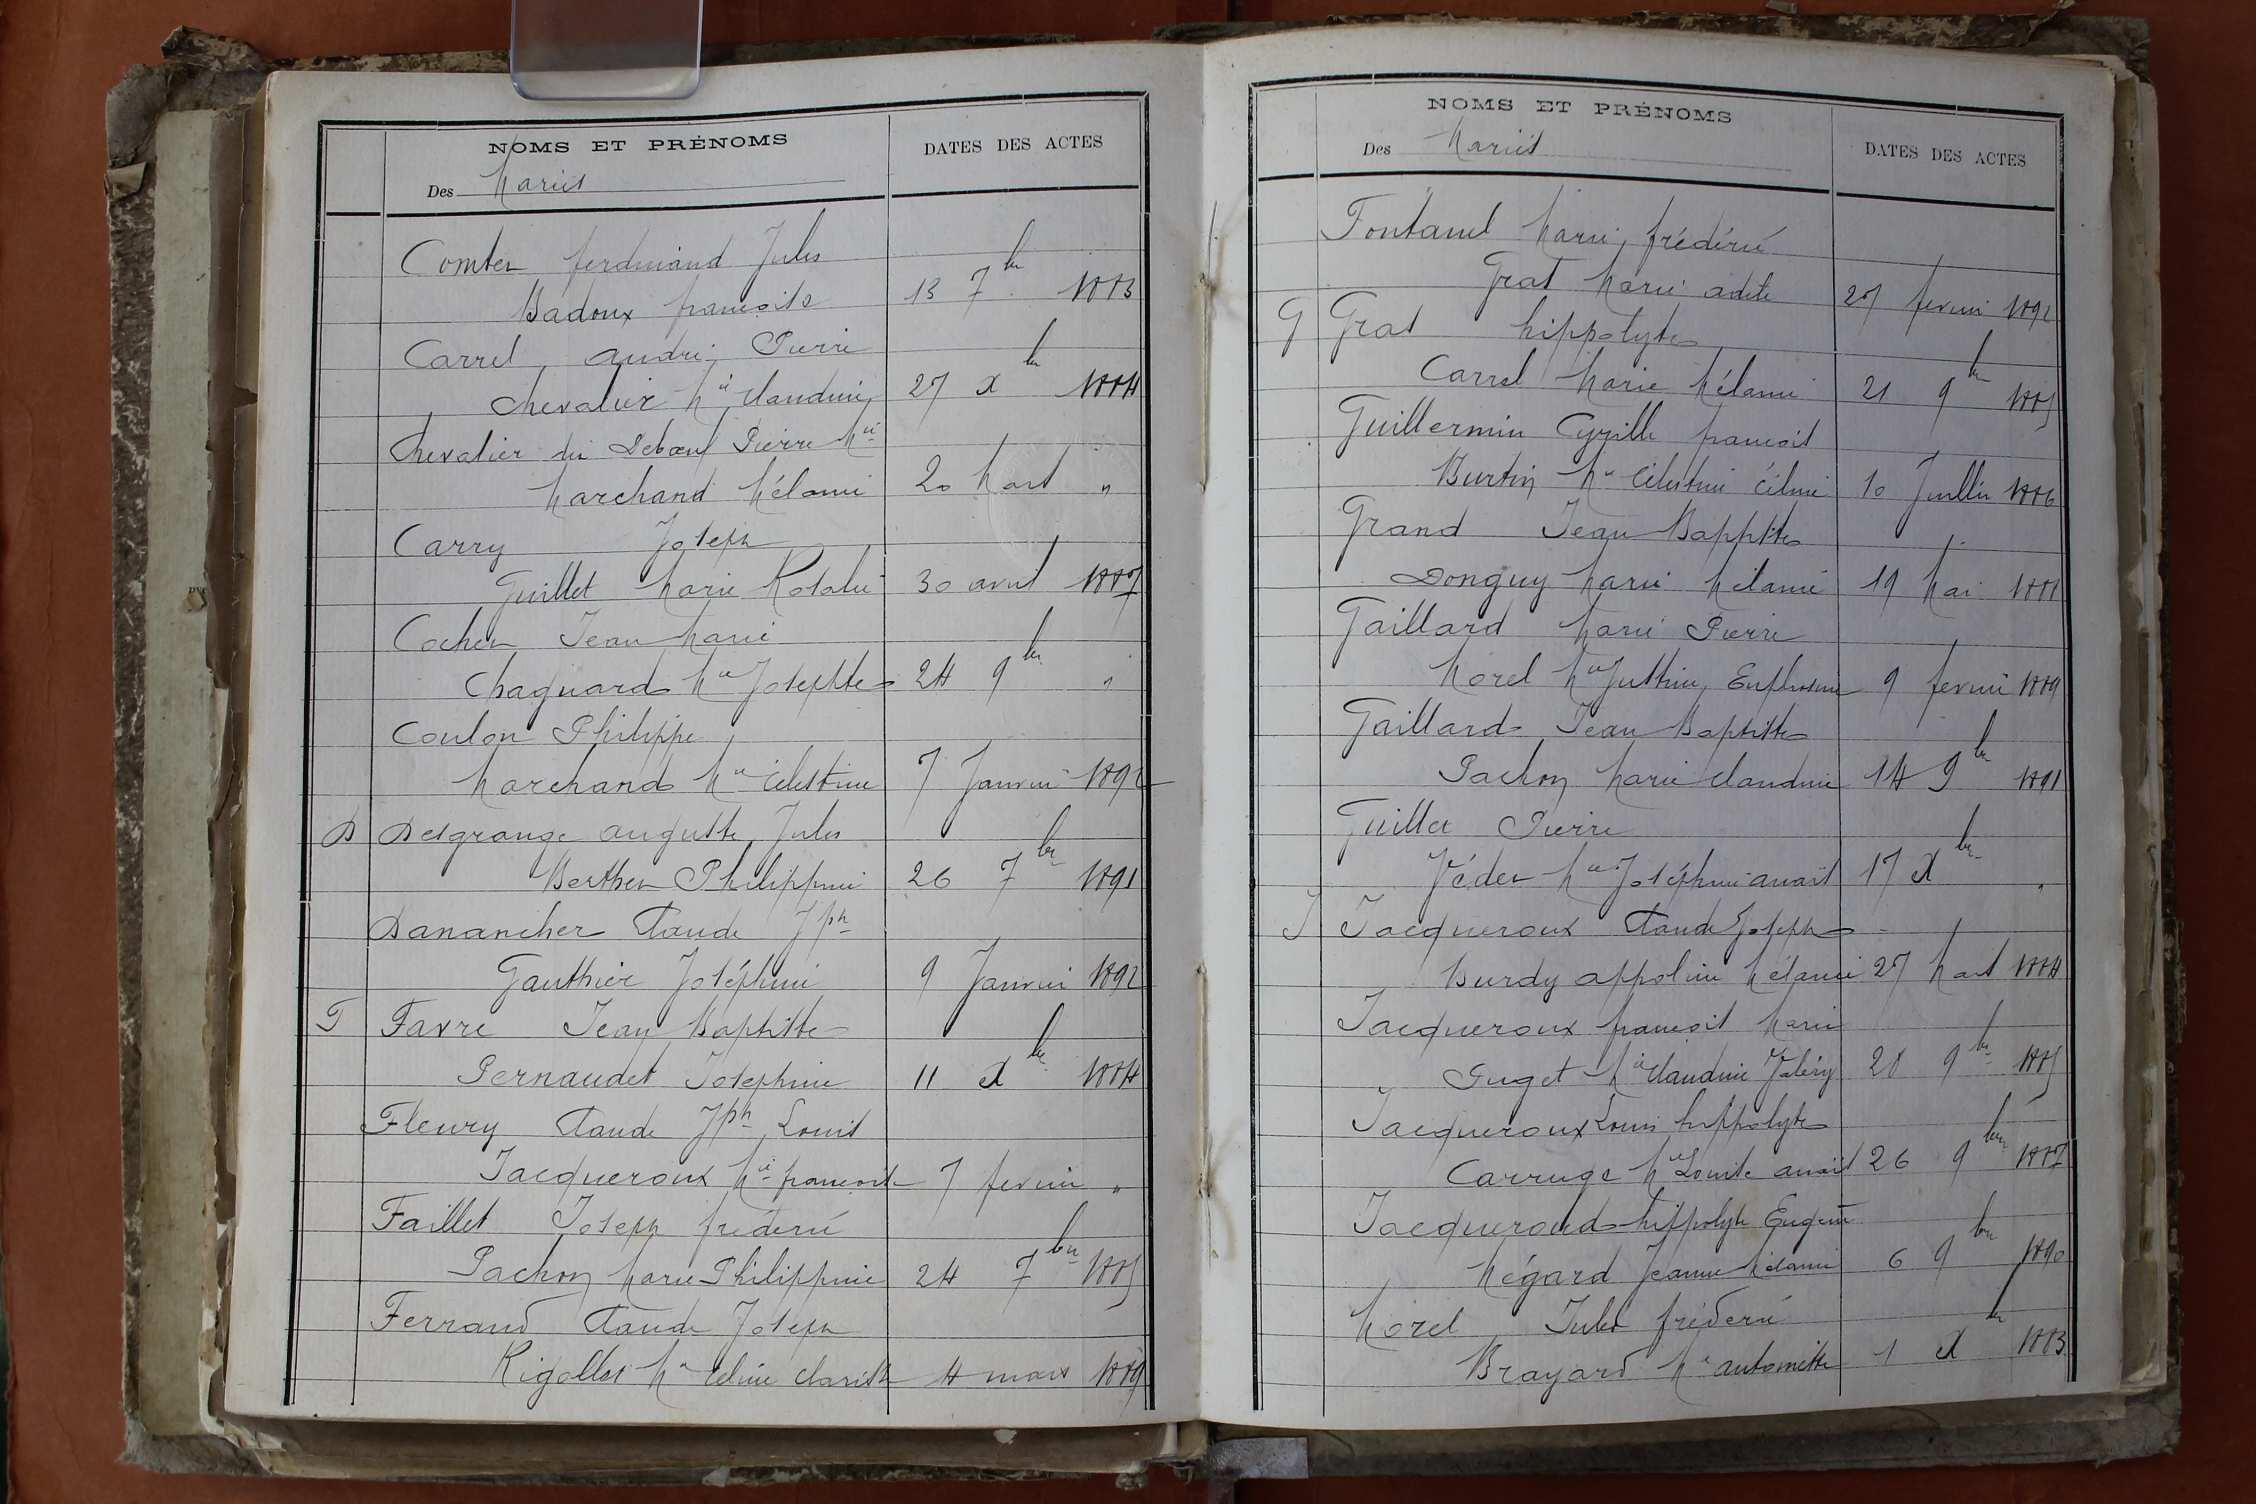 NOMS ET PRÉNOMS
Des Mariés
DATES DES ACTES
Comter ferdinand Jules
Badoux françoise 13 7bre 1883
Carrel andré Pierre
Chevalier Mie Claudine 27 Xbre 1884
Chevalier dit Debœuf Pierre Mie
Marchand Mélanie 20 Mars "
Carry Joseph
Guillet Marie Rosalie 30 avril 1887
Cochet Jean Marie
Chagnard Mie Josephte 24 9bre "
Coulon Philippe
Marchand Mie Célestine 7 Janvier 1892
D Desgrange auguste Jules
Berthet Philippine 26 7bre 1891
Danancher Claude Jph
Gauthier Joséphine 9 Janvier 1892
F Favre Jean Baptiste
Pernaudet Josephine 11 Xbre 1884
Fleury Claude Jph Louis
Jacqueroux Mie françoise 7 fevrier "
Faillet Joseph fréderic
Pachon Marie Philippine 24 7bre 1885
Ferrand Claude Joseph
Rigollet Mie Céline Clarisse 4 mars 1889
NOMS ET PRÉNOMS
Des Mariés
DATES DES ACTES
Fontanel Marie fréderic
Grat Marie adele 27 fevrier 1892
G Grat hippolyte
Carrel Marie Mélanie 21 9bre 1885
Guillermin Cyrille françois
Burtin Mie Célestine Céline 10 Juillet 1886
Grand Jean Baptiste
Donguy Marie Mélanie 19 Mai 1888
Gaillard Marie Pierre
Morel Mie Justine Euphrosine 9 fevrier 1889
Gaillard Jean Baptiste
Pachon Marie Claudine 14 9bre 1891
Guillet Pierre
Véder Mie Joséphine anaïs 17 Xbre "
J Jacqueroux Claude Joseph
Burdy appoline Mélanie 27 Mars 1884
Jacqueroux françois Marie
Puget Mie Claudine Valéry 28 9bre 1885
Jacqueroux Louis hippolyte
Carruge Mie Louise anaïs 26 9bre 1887
Jacqueroud hippolyte Eugène
Mégard Jeanne Mélanie 6 9bre 1890
Morel Jules fréderic
Brayard Mie antoinette 1 Xbre 1883